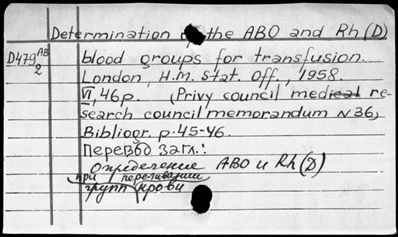 Determination of the ABO and Rh (D)
D479 AB/2 blood groups for transfusion.
London, H.M. Stat. Off., 1958.
VI, 46p. (Privy council medical re-
search council memorandum N 36)
Bibliogr. p. 45-46.
Перевод загл.:
Определение ABO и Rh (D)
при переливании
групп крови